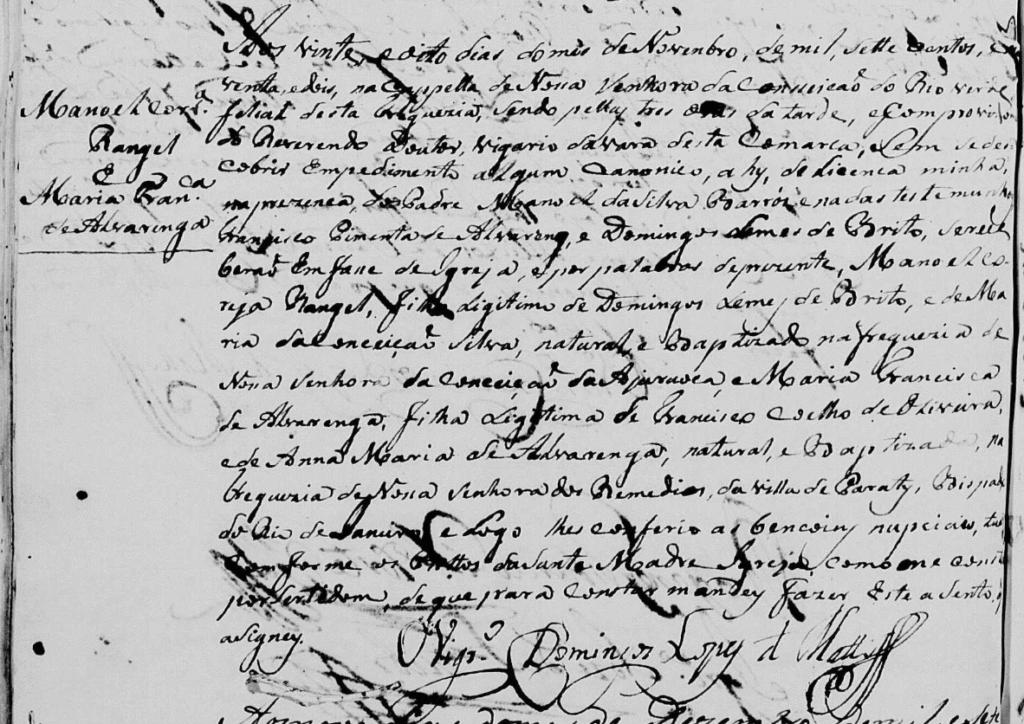 Aos vinte e oito dias do mes de Novenbro, de mil, sette centos,
venta, e dois, na Cappella de Nossa Senhora da Conseiçaõ do Rio verde
Manoel Corr.ª
Rangel
E
Maria Fran.ca
de Alvarenga
filial desta freguezia, sendo pellas tres oras da tarde, e Com provizam
do Reverendo Doutor, vigario da vara desta Comarca, e Sem se des
cobrir Empedimento algum Canonico, ahy, de licenca minha,
na prezenca, do Padre Manoel da Silva Barros e na das testemunhas
Francisco Pimenta de Alvareng, e Domingos Lemes de Brito, se rece
beraõ Em face de Igreja, e por palabras de prezente, Manoel Co-
reja Rangel, filho Ligitimo de Domingos Lemes de Brito, e de Ma
ria da Conceiçaõ Silva, natural, e Baptizado na freguezia de
Nossa senhora da Conceiçaõ da Ajuruoca, e Maria Francisca
de Alvarenga, filha Ligitima de Francisco Coelho de Oliveira,
e de Anna Maria de Alvarenga, natural, e Baptizada, na
freguezia de Nossa senhora dos Remedios, da Villa de Paraty, Bispado
do Rio de Janeiro, e Logo lhes conferio as bencoins nupciais, tudo
Comforme os Rittos da Santa Madre Igreja, como me const
por sertidom, de que para Constar mandey fazer Este asento,
asigney.
O Vigr.o Domingos Lopes d Mattos